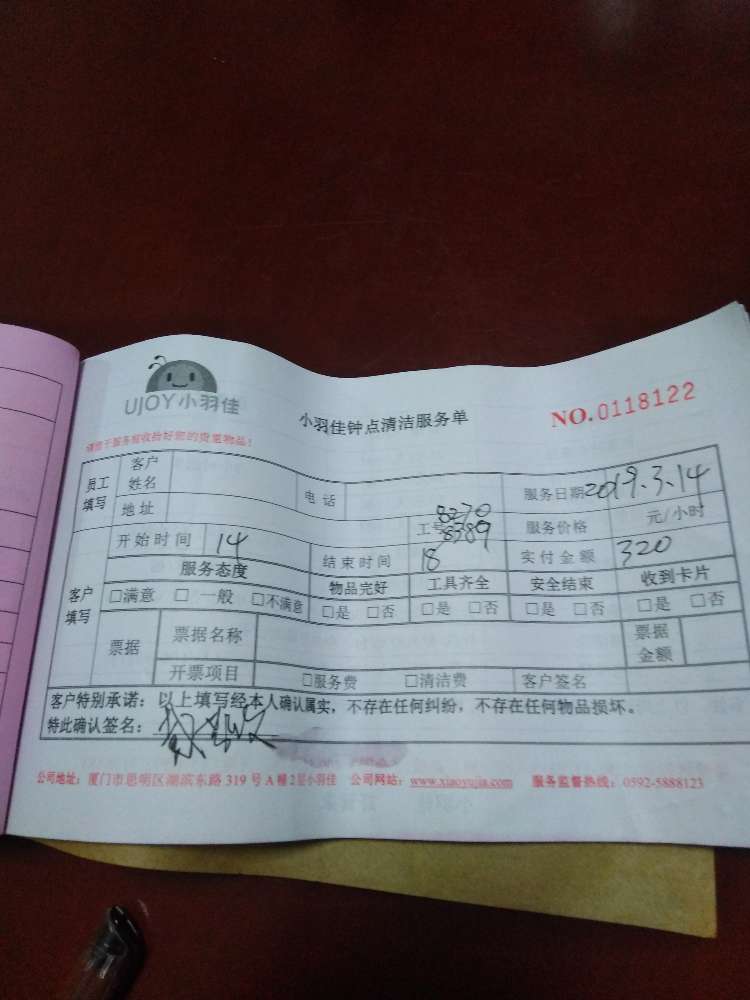 UJOY小羽佳
小羽佳钟点清洁服务单
NO.0118122
请您于服务前收拾好您的贵重物品!
员工填写 客户姓名 电话 服务日期 2019.3.14
地址 工号 8270 8389 服务价格 元/小时
客户填写 开始时间 14 结束时间 18 实付金额 320
服务态度 物品完好 工具齐全 安全结束 收到卡片
□满意 □一般 □不满意 □是 □否 □是 □否 □是 □否 □是 □否
票据 票据名称 票据金额
开票项目 □服务费 □清洁费 客户签名
客户特别承诺：以上填写经本人确认属实，不存在任何纠纷，不存在任何物品损坏。
特此确认签名：
公司地址：厦门市思明区湖滨东路 319 号 A 幢 2 层小羽佳 公司网站：www.xiaoyujia.com 服务监督热线：0592-5888123